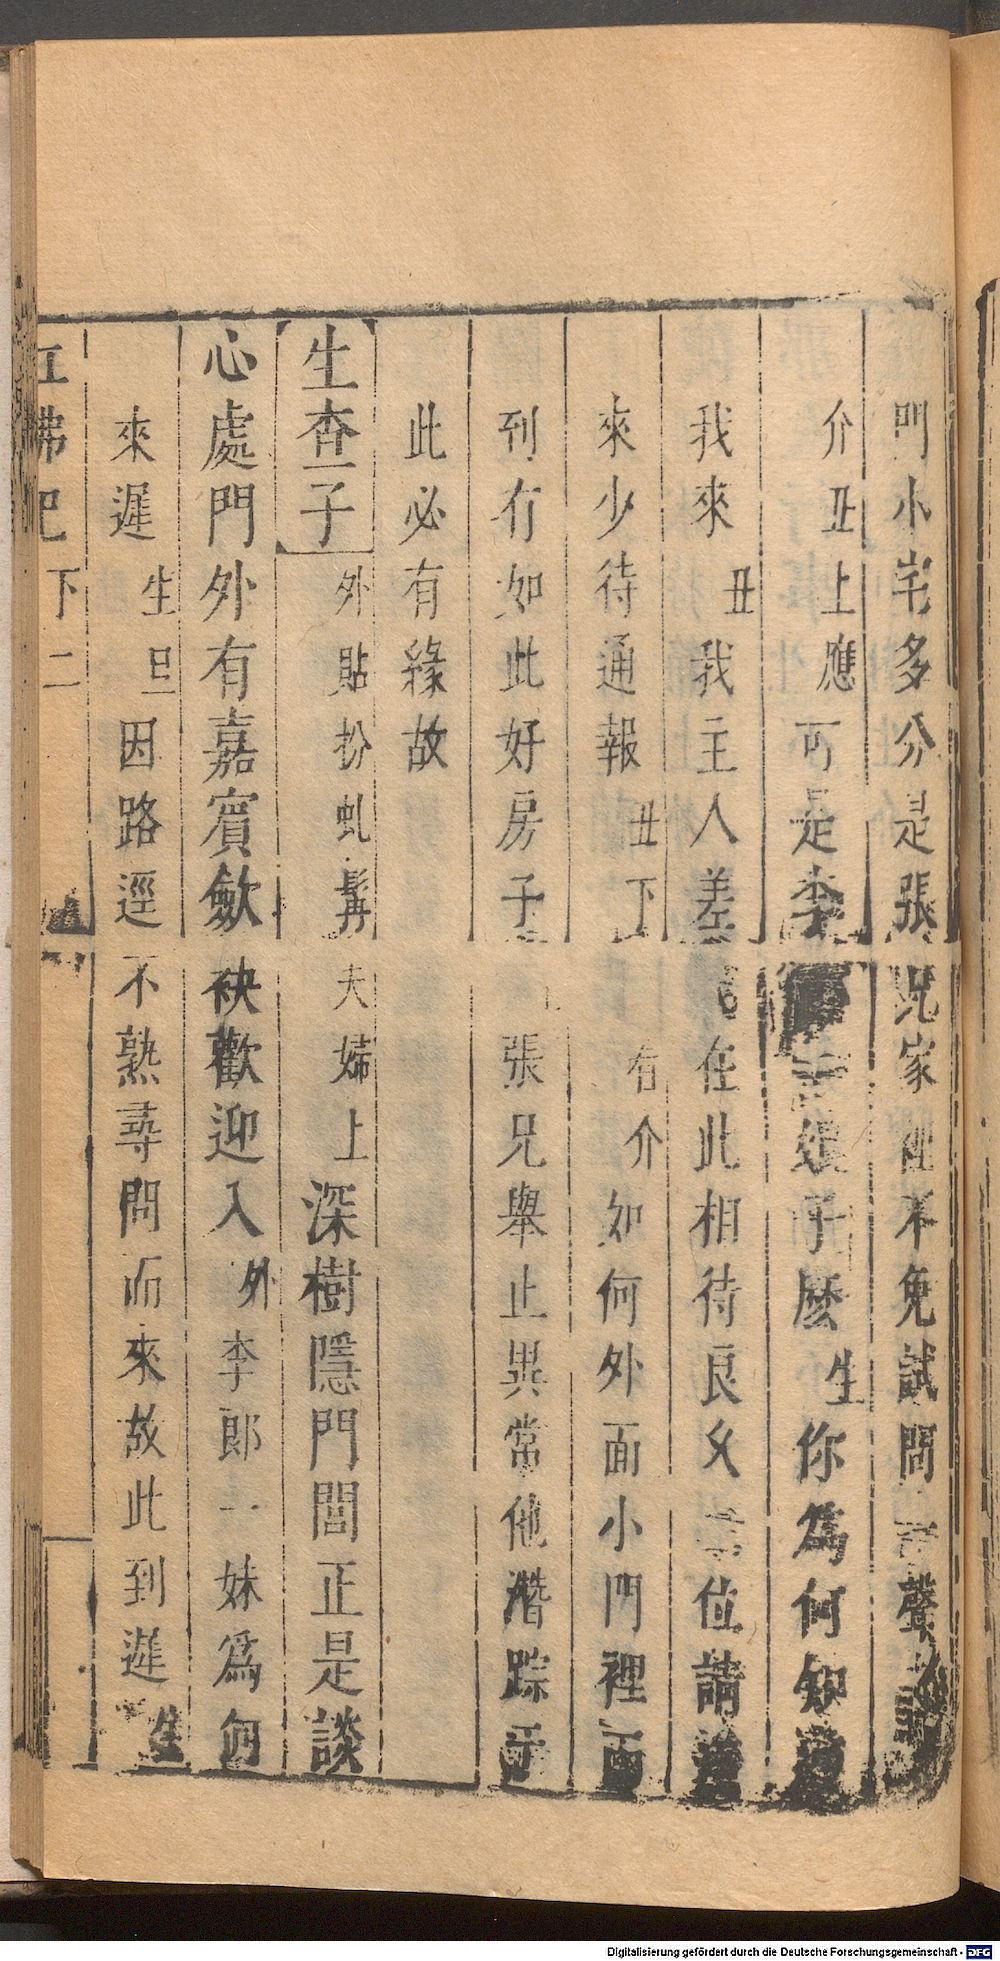 門小宅多分是張兄家裡不免試問一聲
介丑上應可是李 娘子麽生你爲何知道
我來丑我主人差 在此相待良久二位請
來少待通報丑下 右介如何外面小門裡面
到有如此好房子 張兄舉止異常他潛踪于
此必有緣故
生查子外貼扮虬髯夫婦上深樹隱門閭正是談
心處門外有嘉賓斂袂歡迎入外李郎一妹爲何
來遲生旦因路逕不熟尋問而來故此到遲生
紅拂記 下 二
Digitalisierung gefördert durch die Deutsche Forschungsgemeinschaft - DFG